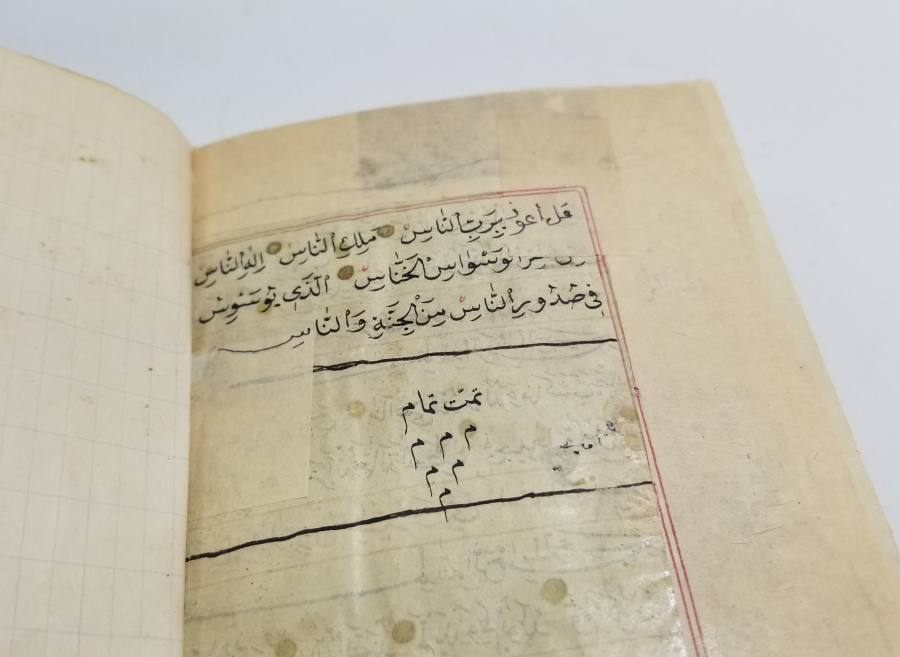 قل اعوذ بِرَبِّ النَّاسِ مَلِكِ النَّاسِ اِلٰهِ النَّاسِ
الْوَسْوَاسِ الْخَنَّاسِ الَّذِى يُوَسْوِسُ
فِى صُدُورِ النَّاسِ مِنَ الْجِنَّةِ وَالنَّاسِ
تمّت تمام
م م م
م م
م